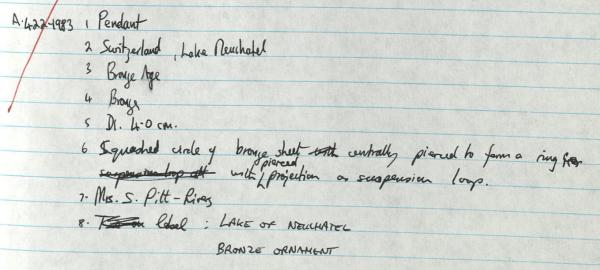 A.422-1983 1 Pendant
2 Switzerland, Lake Neuchatel
3 Bronze Age
4 Bronze
5 DI. 4.0 cm.
6 Squashed circle of bronze sheet with centrally pierced to form a ring from
suspension loop att with pierced projection as suspension loop.
7. Mrs. S. Pitt-Rivers
8. label : LAKE OF NEUCHATEL
BRONZE ORNAMENT